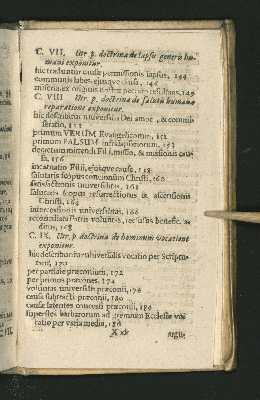 C. VII. Utr. p. doctrina de lapsu generis humani
exponitur.
hic traduntur causæ permissionis lapsus, 144
communis labes, ejusque causa, 146
miseria ex originis nostræ peccato resultans, 149
C. VIII Utr. p. doctrina de salute humana
reparatione exponitur.
hic describitur universalis Dei amor, & commiseratio,
151
primum VERUM Evangelicorum, 152
primum FALSUM infralapsariorum, 153
decretum mittendi Filii, missio, & missionis causa,
156
incarnatio Filii, ejusque causa, 158
salutaris scopus concionum Christi, 160
satisfactionis universalitas, 162
salutaris scopus resurrectionis & ascensionis
Christi, 164
intercessionis universalitas, 166
reconciliata Patris voluntas, reclusus benefic.
ditus, 168
C. IX. Utr. p. doctrina de hominum vocatione
exponitur.
hic describitur universalis vocatio per Scripturas,
172
per partiale præconium, 172
per primus præcones, 174
voluntas universalis præconii, 176
causa subtracti præconii, 180
causæ latentes concessi præconii, 180
superstes barbarorum ad gremium Ecclesiæ vocatio
per varia media, 186
X xx
argu-